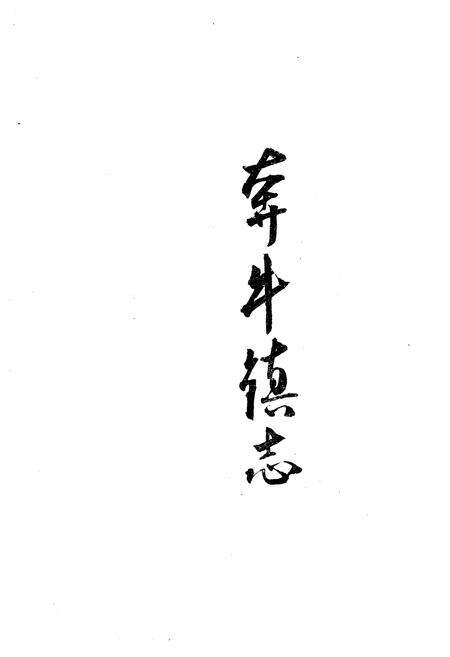 奔牛镇志